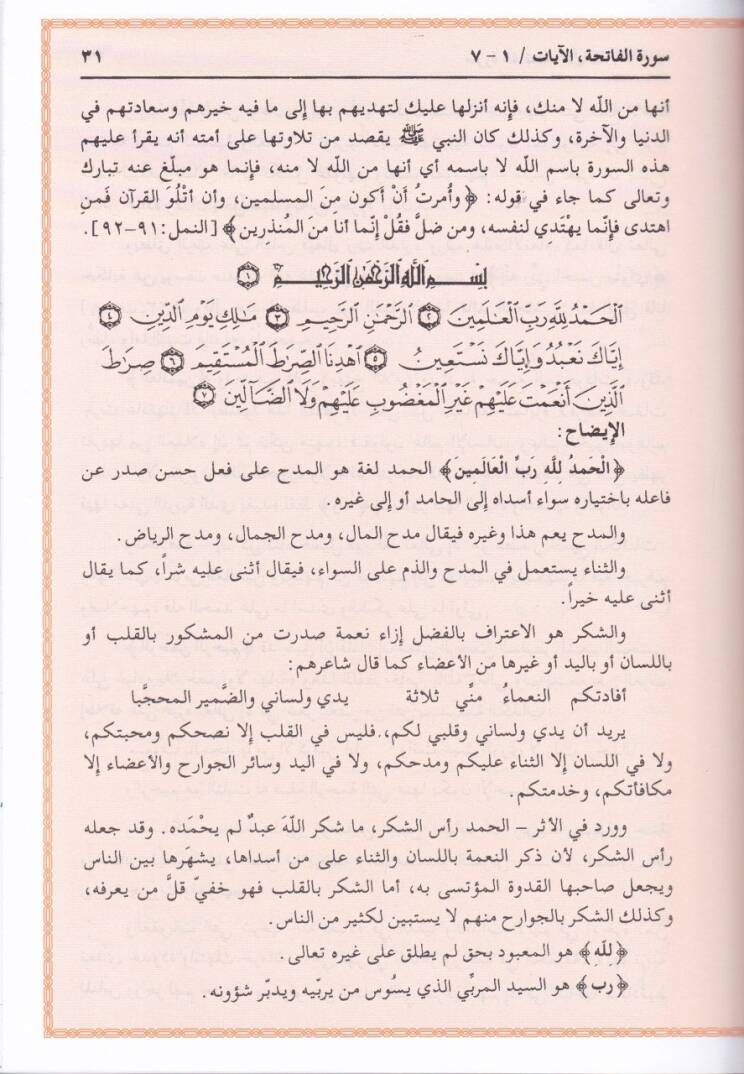 سورة الفاتحة، الآيات / ١ - ٧
٣١
أنها من الله لا منك، فإنه أنزلها عليك لتهديهم بها إلى ما فيه خيرهم وسعادتهم في
الدنيا والآخرة، وكذلك كان النبي ﷺ يقصد من تلاوتها على أمته أنه يقرأ عليهم
هذه السورة باسم الله لا باسمه أي أنها من الله لا منه، فإنما هو مبلّغ عنه تبارك
وتعالى كما جاء في قوله: ﴿وأُمرتُ أنْ أكون مِنَ المسلمين، وأن أتْلُوَ القرآن فَمنِ
اهتدى فإنّما يهْتَدِي لنفسه، ومن ضلَّ فقُلْ إنّما أنا مِنَ المُنذرِين﴾ [النمل: ٩١-٩٢].
بِسْمِ اللَّهِ الرَّحْمَٰنِ الرَّحِيمِ ١
الْحَمْدُ لِلَّهِ رَبِّ الْعَالَمِينَ ٢ الرَّحْمَٰنِ الرَّحِيمِ ٣ مَالِكِ يَوْمِ الدِّينِ ٤
إِيَّاكَ نَعْبُدُ وَإِيَّاكَ نَسْتَعِينُ ٥ اهْدِنَا الصِّرَاطَ الْمُسْتَقِيمَ ٦ صِرَاطَ
الَّذِينَ أَنْعَمْتَ عَلَيْهِمْ غَيْرِ الْمَغْضُوبِ عَلَيْهِمْ وَلَا الضَّالِّينَ ٧
الإيضاح:
﴿الْحَمدُ لِلّهِ رَبِّ الْعَالَمِينَ﴾ الحمد لغة هو المدح على فعل حسن صدر عن
فاعله باختياره سواء أسداه إلى الحامد أو إلى غيره.
والمدح يعم هذا وغيره فيقال مدح المال، ومدح الجمال، ومدح الرياض.
والثناء يستعمل في المدح والذم على السواء، فيقال أثنى عليه شراً، كما يقال
أثنى عليه خيراً.
والشكر هو الاعتراف بالفضل إزاء نعمة صدرت من المشكور بالقلب أو
باللسان أو باليد أو غيرها من الأعضاء كما قال شاعرهم:
أفادتكم النعماءُ منِّي ثلاثة يدي ولساني والضَّمير المحجَّبا
يريد أن يدي ولساني وقلبي لكم، فليس في القلب إلا نصحكم ومحبتكم،
ولا في اللسان إلا الثناء عليكم ومدحكم، ولا في اليد وسائر الجوارح والأعضاء إلا
مكافأتكم، وخدمتكم.
وورد في الأثر – الحمد رأس الشكر، ما شكر اللهَ عبدٌ لم يحْمَده. وقد جعله
رأس الشكر، لأن ذكر النعمة باللسان والثناء على من أسداها، يشهَرها بين الناس
ويجعل صاحبها القدوة المؤتسى به، أما الشكر بالقلب فهو خفيّ قلَّ من يعرفه،
وكذلك الشكر بالجوارح منهم لا يستبين لكثير من الناس.
﴿لِلّهِ﴾ هو المعبود بحق لم يطلق على غيره تعالى.
﴿رب﴾ هو السيد المربّي الذي يسُوس من يربّيه ويدبّر شؤونه.